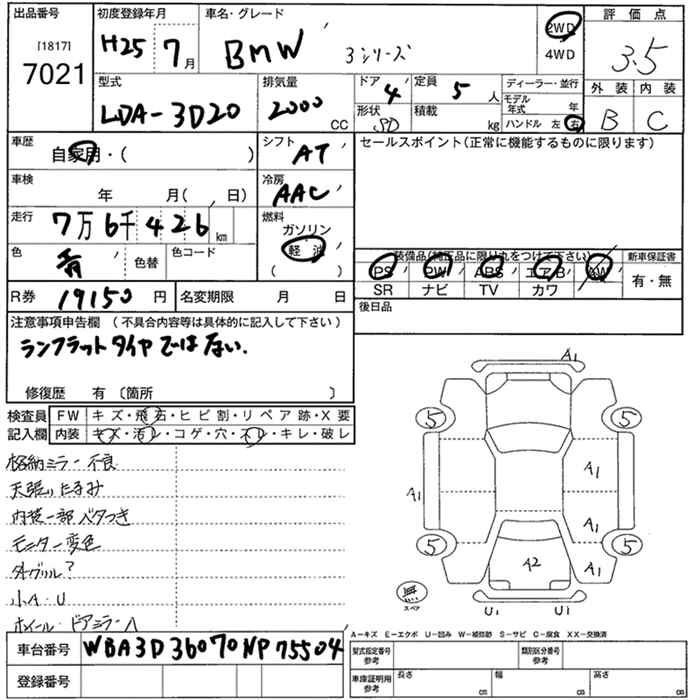 出品番号 初度登録年月 車名・グレード 評価点
[1817] 7021 H25 7月 BMW 3シリーズ 2WD 4WD 3.5
型式 排気量 ドア 定員 ディーラー・並行 外装 内装
LDA-3D20 2000 CC 4 5人 モデル年式 年 B C
形状 積載 kg ハンドル 左 右
車歴 自家用・( ) シフト AT セールスポイント(正常に機能するものに限ります)
車検 年 月( 、 日) 冷房 AAC
走行 7万6千426km 燃料 ガソリン 軽油 ( )
色 青 色替 色コード
装備品(純正品に限り丸をつけて下さい) 新車保証書
PS PW ABS エアB AW 有・無
SR ナビ TV カワ
R券 19150円 名変期限 月 日 後日品
注意事項申告欄(不具合内容等は具体的に記入して下さい)
ランフラットタイヤではない.
修復歴 有〔箇所 〕
検査員 FW キズ・飛石・ヒビ割・リペア跡・X要
記入欄 内装 キズ・汚レ・コゲ・穴・スレ・キレ・破レ
格納ミラー不良
天張りたるみ
内装一部ベタつき
モニター変色
外グリル?
小A・U
ホイール・ドアミラーA
A1
5 5
A1
A1 A1
5 5
A2 A1
無 スペア U1 U1
A-キズ E-エクボ U-凹み W-補修跡 S-サビ C-腐食 XX-交換済
車台番号 WBA3D36070NP75504
登録番号
型式指定番号 参考 類別区分番号 参考
車庫証明用 参考 長さ cm 幅 cm 高さ cm